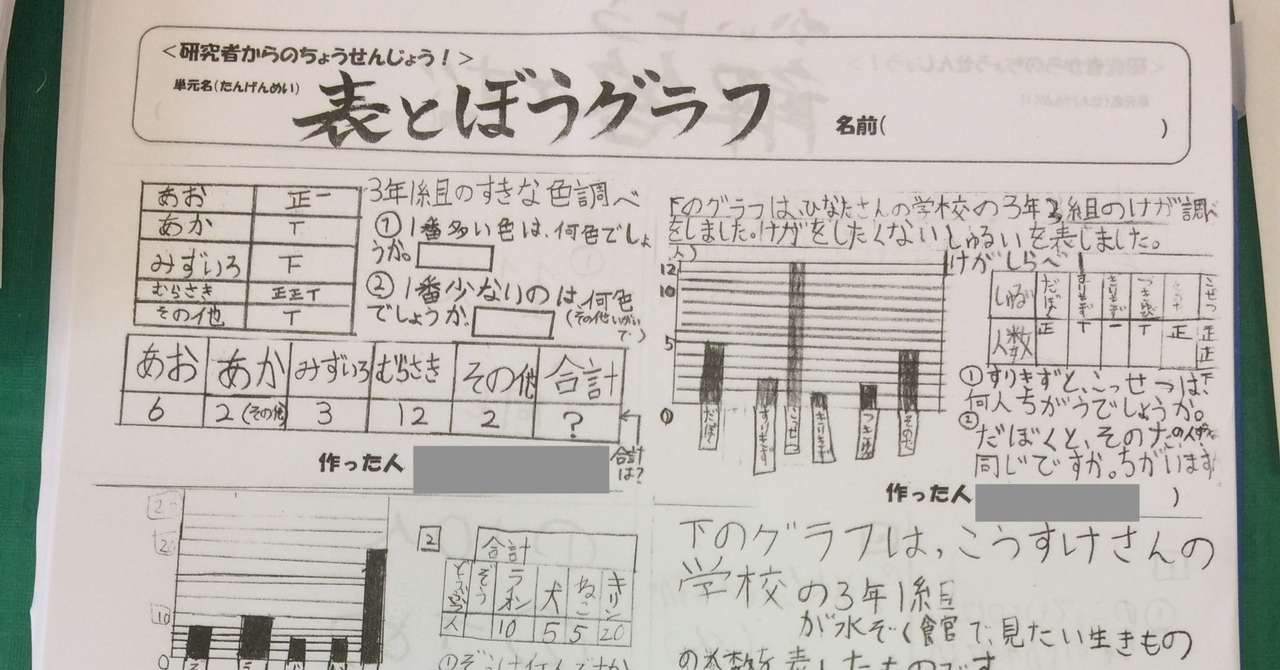 <研究者からのちょうせんじょう!>
単元名(たんげんめい)
表とぼうグラフ
名前( )
3年1組のすきな色調べ
あお 正一
あか T
みずいろ 下
むらさき 正正T
その他 T
① 1番多い色は、何色でしょ
うか。
② 1番少ないのは何色
でしょうか。(その他いがい
で)
あお あか みずいろ むらさき その他 合計
6 2(その他) 3 12 2 ?
合計
は?
作った人
下のグラフは、ひなたさんの学校の3年2組のけが調べ
をしました。けがをしたくないしゅるいを表しました。
けがしらべ
(人)
12
10
5
0
だぼく すりきず こっせつ きりきず つきゆび その他
しゅるい だぼく すりきず きりきず つきゆび こっせつ
人数 正 T 一 T 正 正正下
① すりきずと、こっせつは、
何人ちがうでしょうか。
② だぼくと、その
同じですか。ちがいます
作った人 )
20
10
0
2
合計
どうぶつ ぞう ライオン 犬 ねこ キリン
人 10 5 5 20
下のグラフは、こうすけさんの
学校の3年1組
が水ぞく館で、見たい生きもの
の人数を表したものです